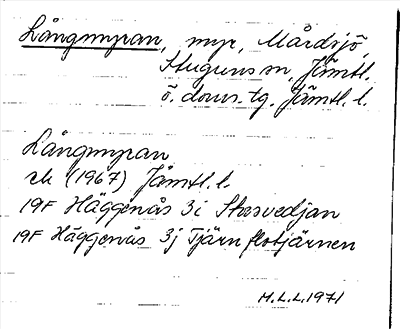 Långmyran, myr, Mårdsjö,
Stuguns sn, Jämtl.
ö. doms. tg. Jämtl. l.
Långmyran
ek (1967) Jämtl. l.
19F Häggenås 3i Storsvedjan
19F Häggenås 3j Tjärnflotjärnen
M.L.L. 1971